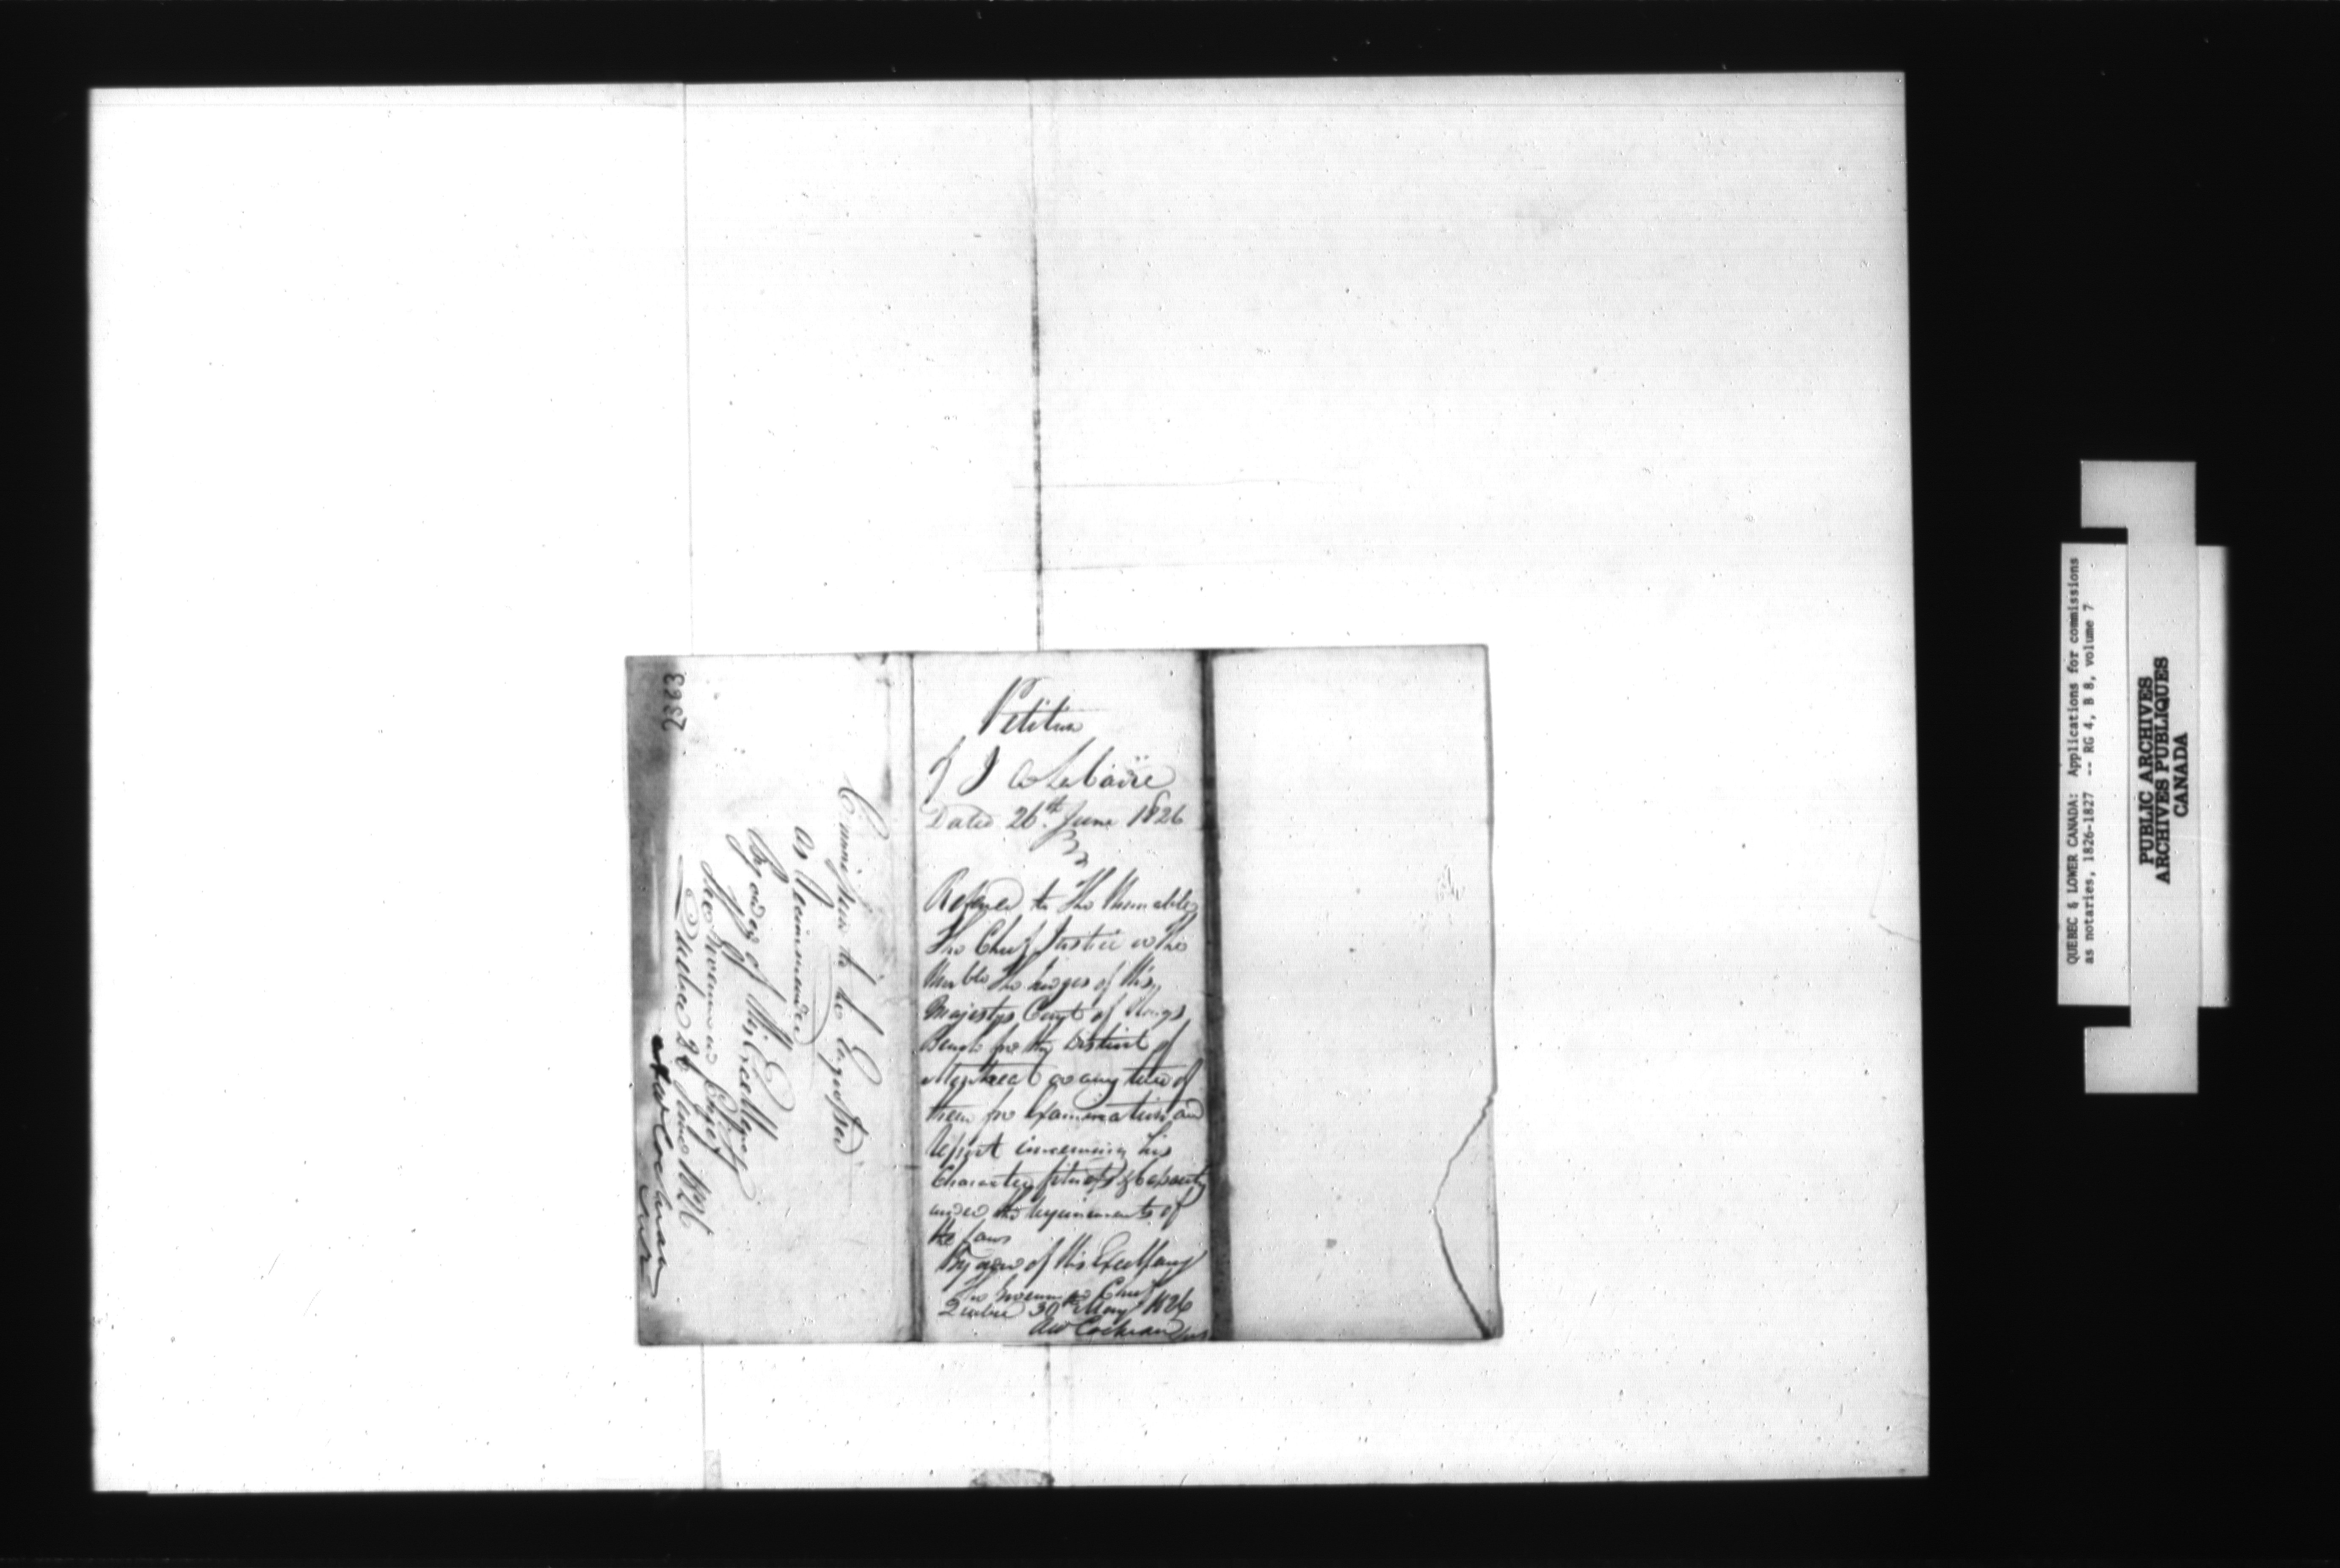 2363
Commission to be
as Recommended
By order of His Excellency
The Governor in Chief
Quebec 26 June 1826
AW Cochran
Secy
Petition
of J A Labadie
Dated 26.th June 1826
Refered to The Honorable
The Chief Justice & The
Honble The Judges of His
Majestys Court of Kings
Bench for the District of
Montreal or any two of
them for Examination and
Report concerning his
Character fitness & Capacity
under the requirements of
the Law
By order of His Excellency
The Governor in Chief
Quebec 30th May 1826
AW Cochran Secy
QUEBEC & LOWER CANADA: Applications for commissions
as notaries, 1826-1827 -- RG 4, B 8, volume 7
PUBLIC ARCHIVES
ARCHIVES PUBLIQUES
CANADA